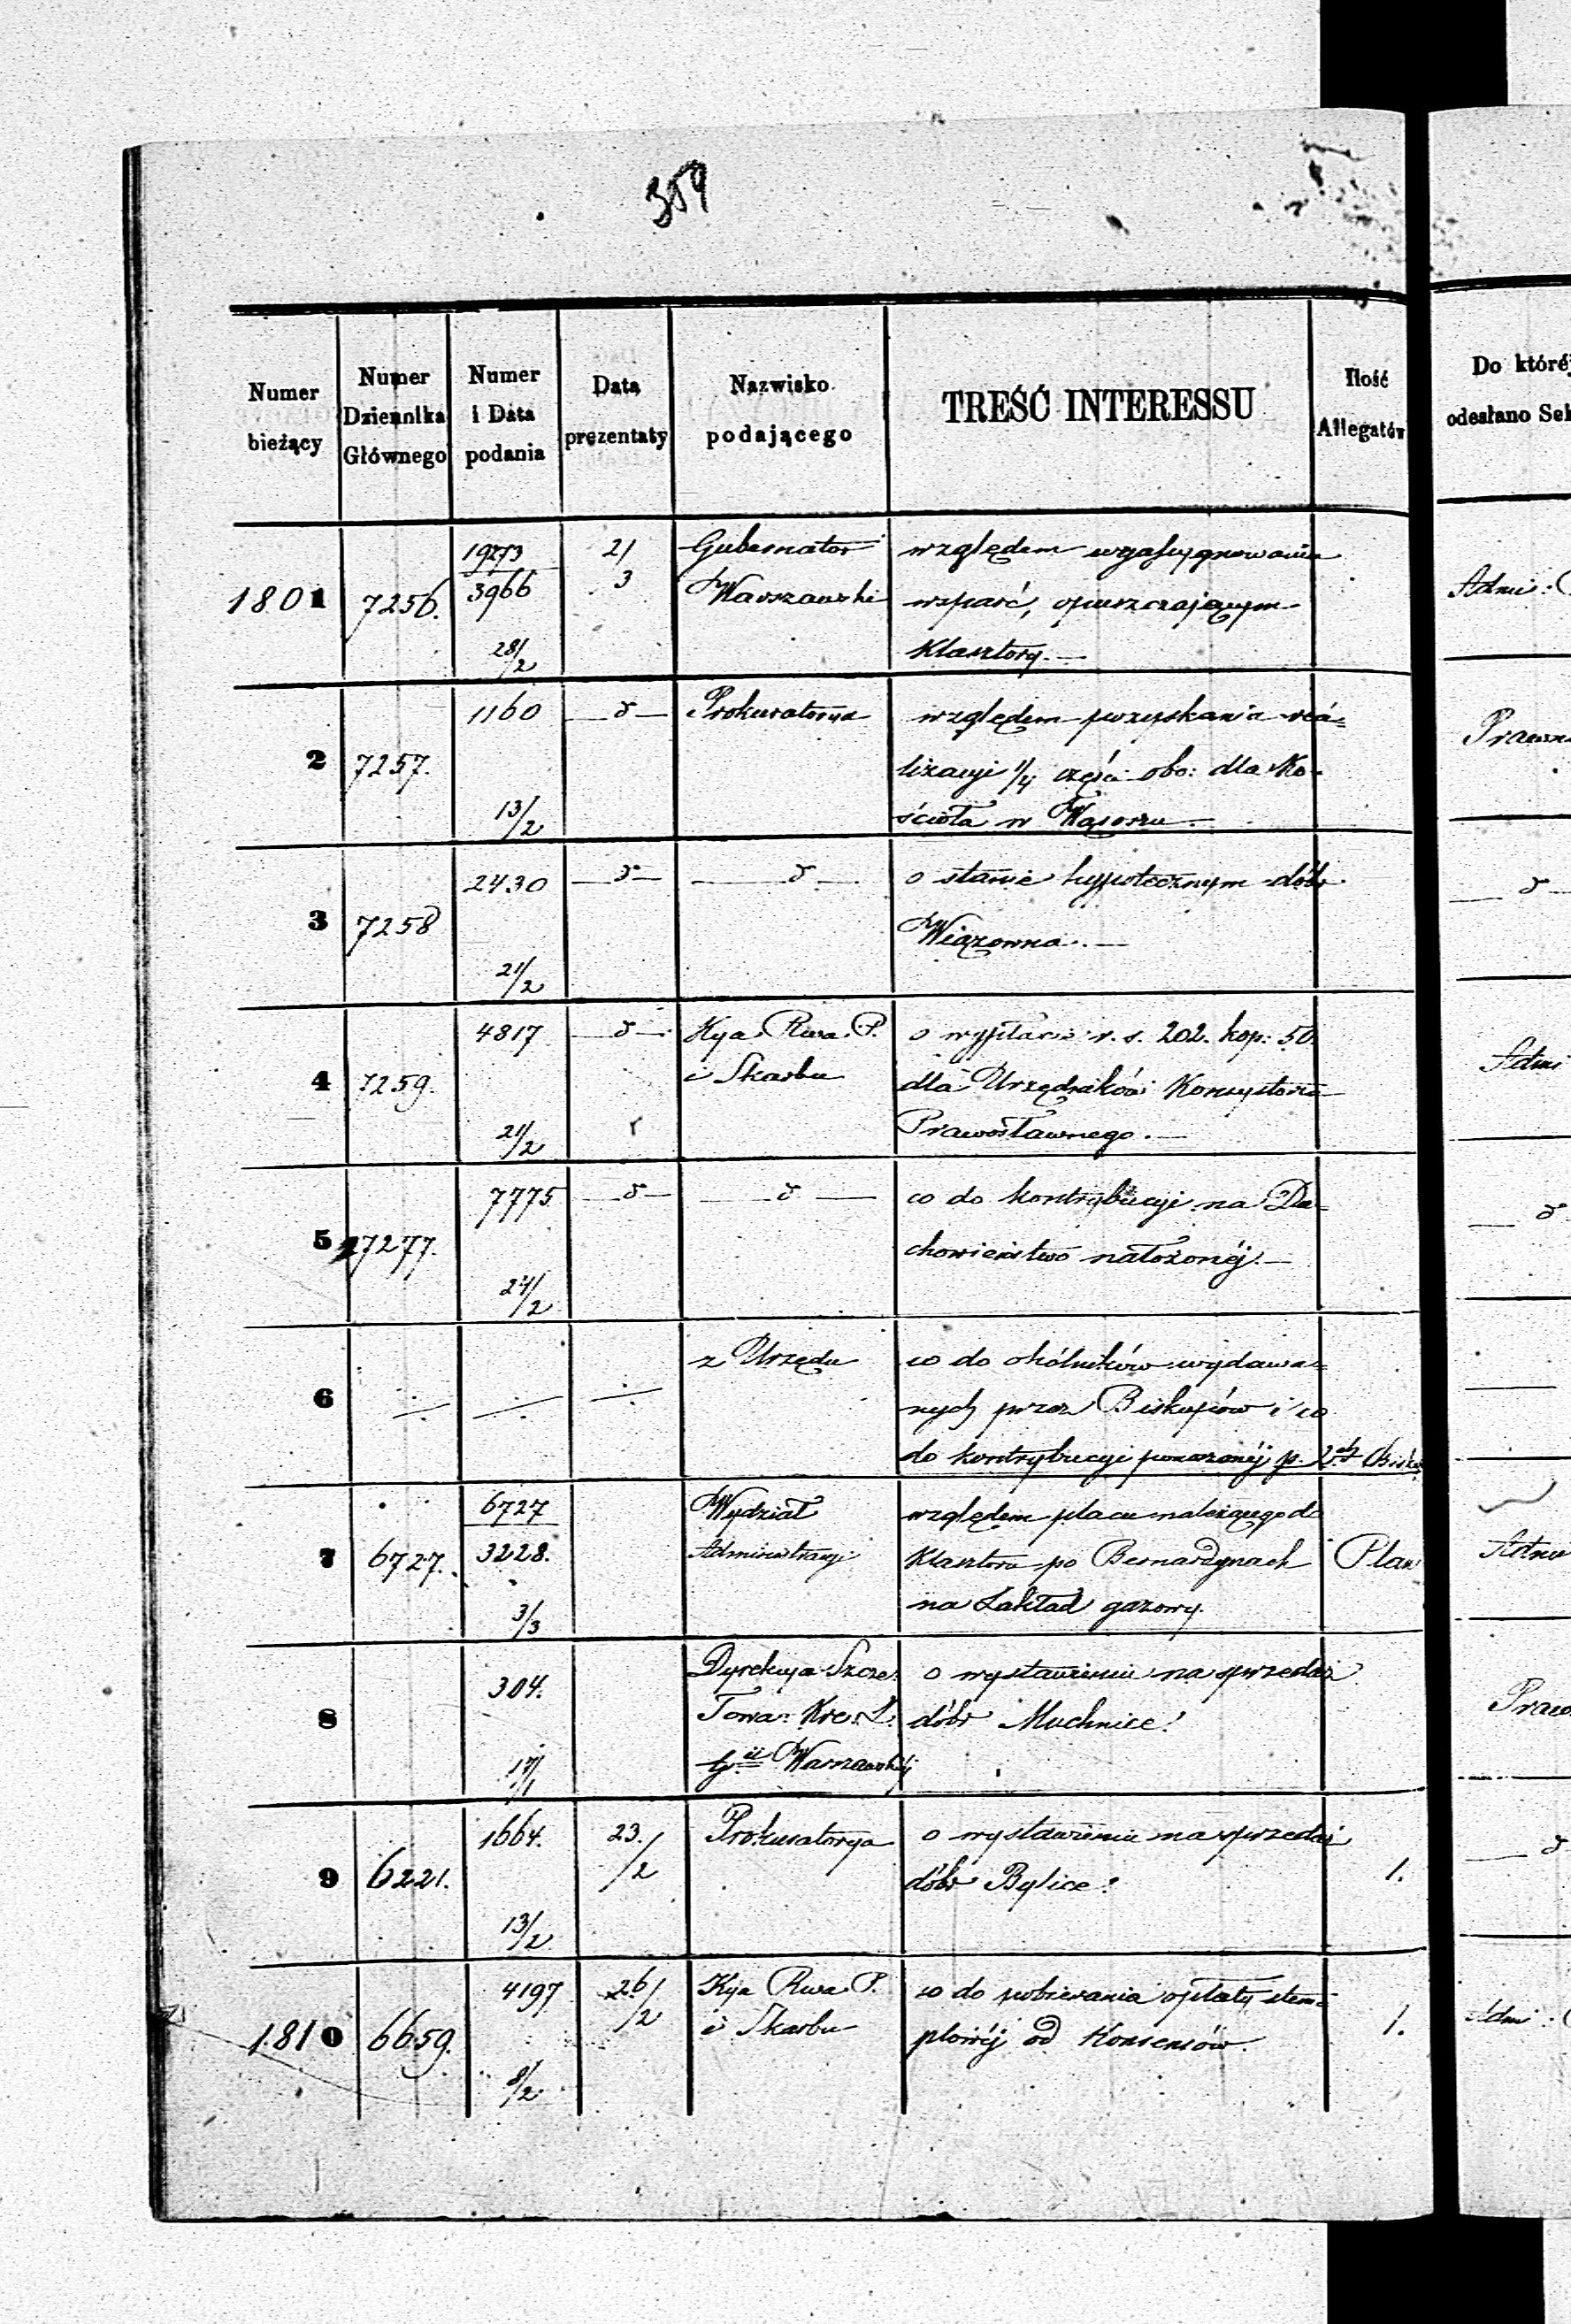 359
Numer bieżący | Numer Dziennika Głównego | Numer i Data podania | Data prezentaty | Nazwisko podającego | TREŚĆ INTERESSU | Ilość Allegatów | Do któréj odesłano Sek
1801 | 7256. | 19273 / 3966 28/2 | 2/3 | Gubernator Warszawski | względem wyassygnowania
wsparć, opuszczającym
Klasztory.— | Admi:
2 | 7257. | 1160 13/2 | — d — | Prokuratorya | względem pozyskania rea=
lizacyi 1/4 części obo: dla Ko-
ścioła w Wąsoszu.— | Prawn
3 | 7258 | 2430 21/2 | — d — | — d — | o stanie hypotecznym dóbr
Wiązowna.— | — d —
4 | 7259. | 4817 21/2 | — d — | Kya Rwa P.
i Skarbu | o wypłacie r. s. 202. kop: 50.
dla Urzędników Konsystorza
Prawosławnego.— | Admi
5 | 7277. | 7775 24/2 | — d — | — d — | co do kontrybucyi na Du-
chowieństwo nałożonéj.— | — d
6 | ÷ | ÷ | ÷ | z Urzędu | co do okólników wydawa=
nych przez Biskupów i co
do kontrybucyi p. 2ch
7 | 6727. | 6727 / 3228. 3/3 | Wydział
Administracyi | względem placu należącego do
Klasztoru po Bernardynach
na Zakład gazowy. | Plan | Admi
8 | 304. 17/1 | Dyrekcya Szcze:
Towa: Kre: Z.
Gii Warszawskiéj | o wystawieniu na sprzedaż
dóbr Muchnice. | Praw
9 | 6221. | 1664. 13/2 | 23./2 | Prokuratorya | o wystawieniu na sprzedaż
dóbr Bylice. | 1. | — d
1810 | 6659. | 4197 8/2 | 26/2 | Kya Rwa P.
i Skarbu | co do pobierania opłaty stem-
plowéj od Konsensów. | 1. | Admi: